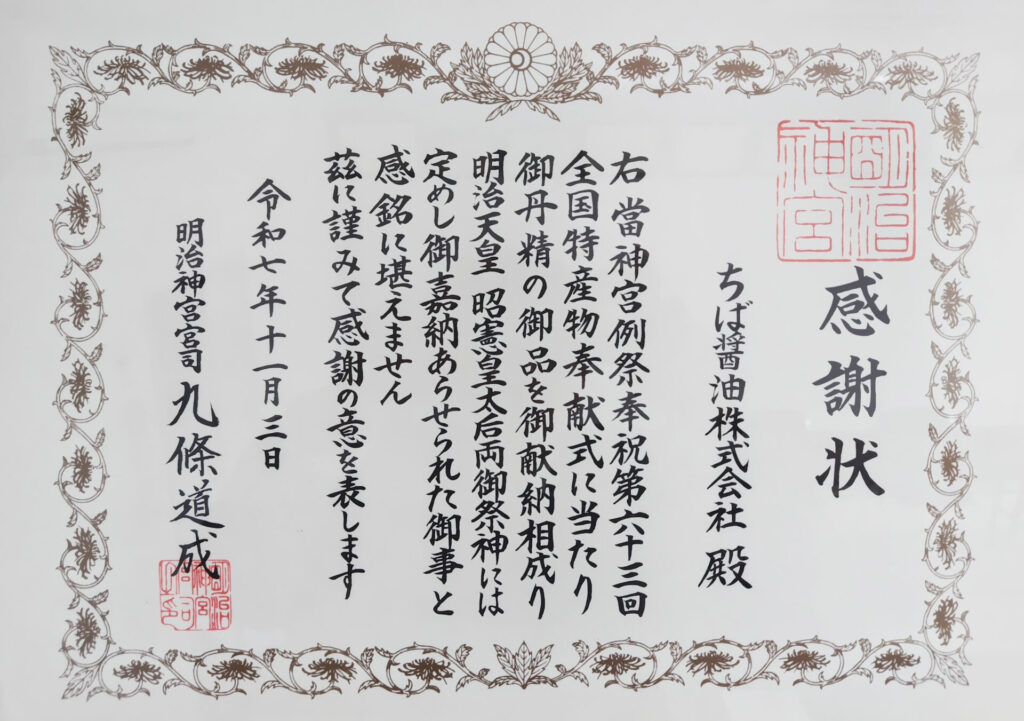 感謝状
明治神宮
ちば醤油株式会社 殿
右 當神宮例祭奉祝第六十三回
全国特産物奉献式に当たり
御丹精の御品を御献納相成り
明治天皇 昭憲皇太后両御祭神には
定めし御嘉納あらせられた御事と
感銘に堪えません
茲に謹みて感謝の意を表します
令和七年十一月三日
明治神宮宮司 九條道成
明治神宮宮司之印